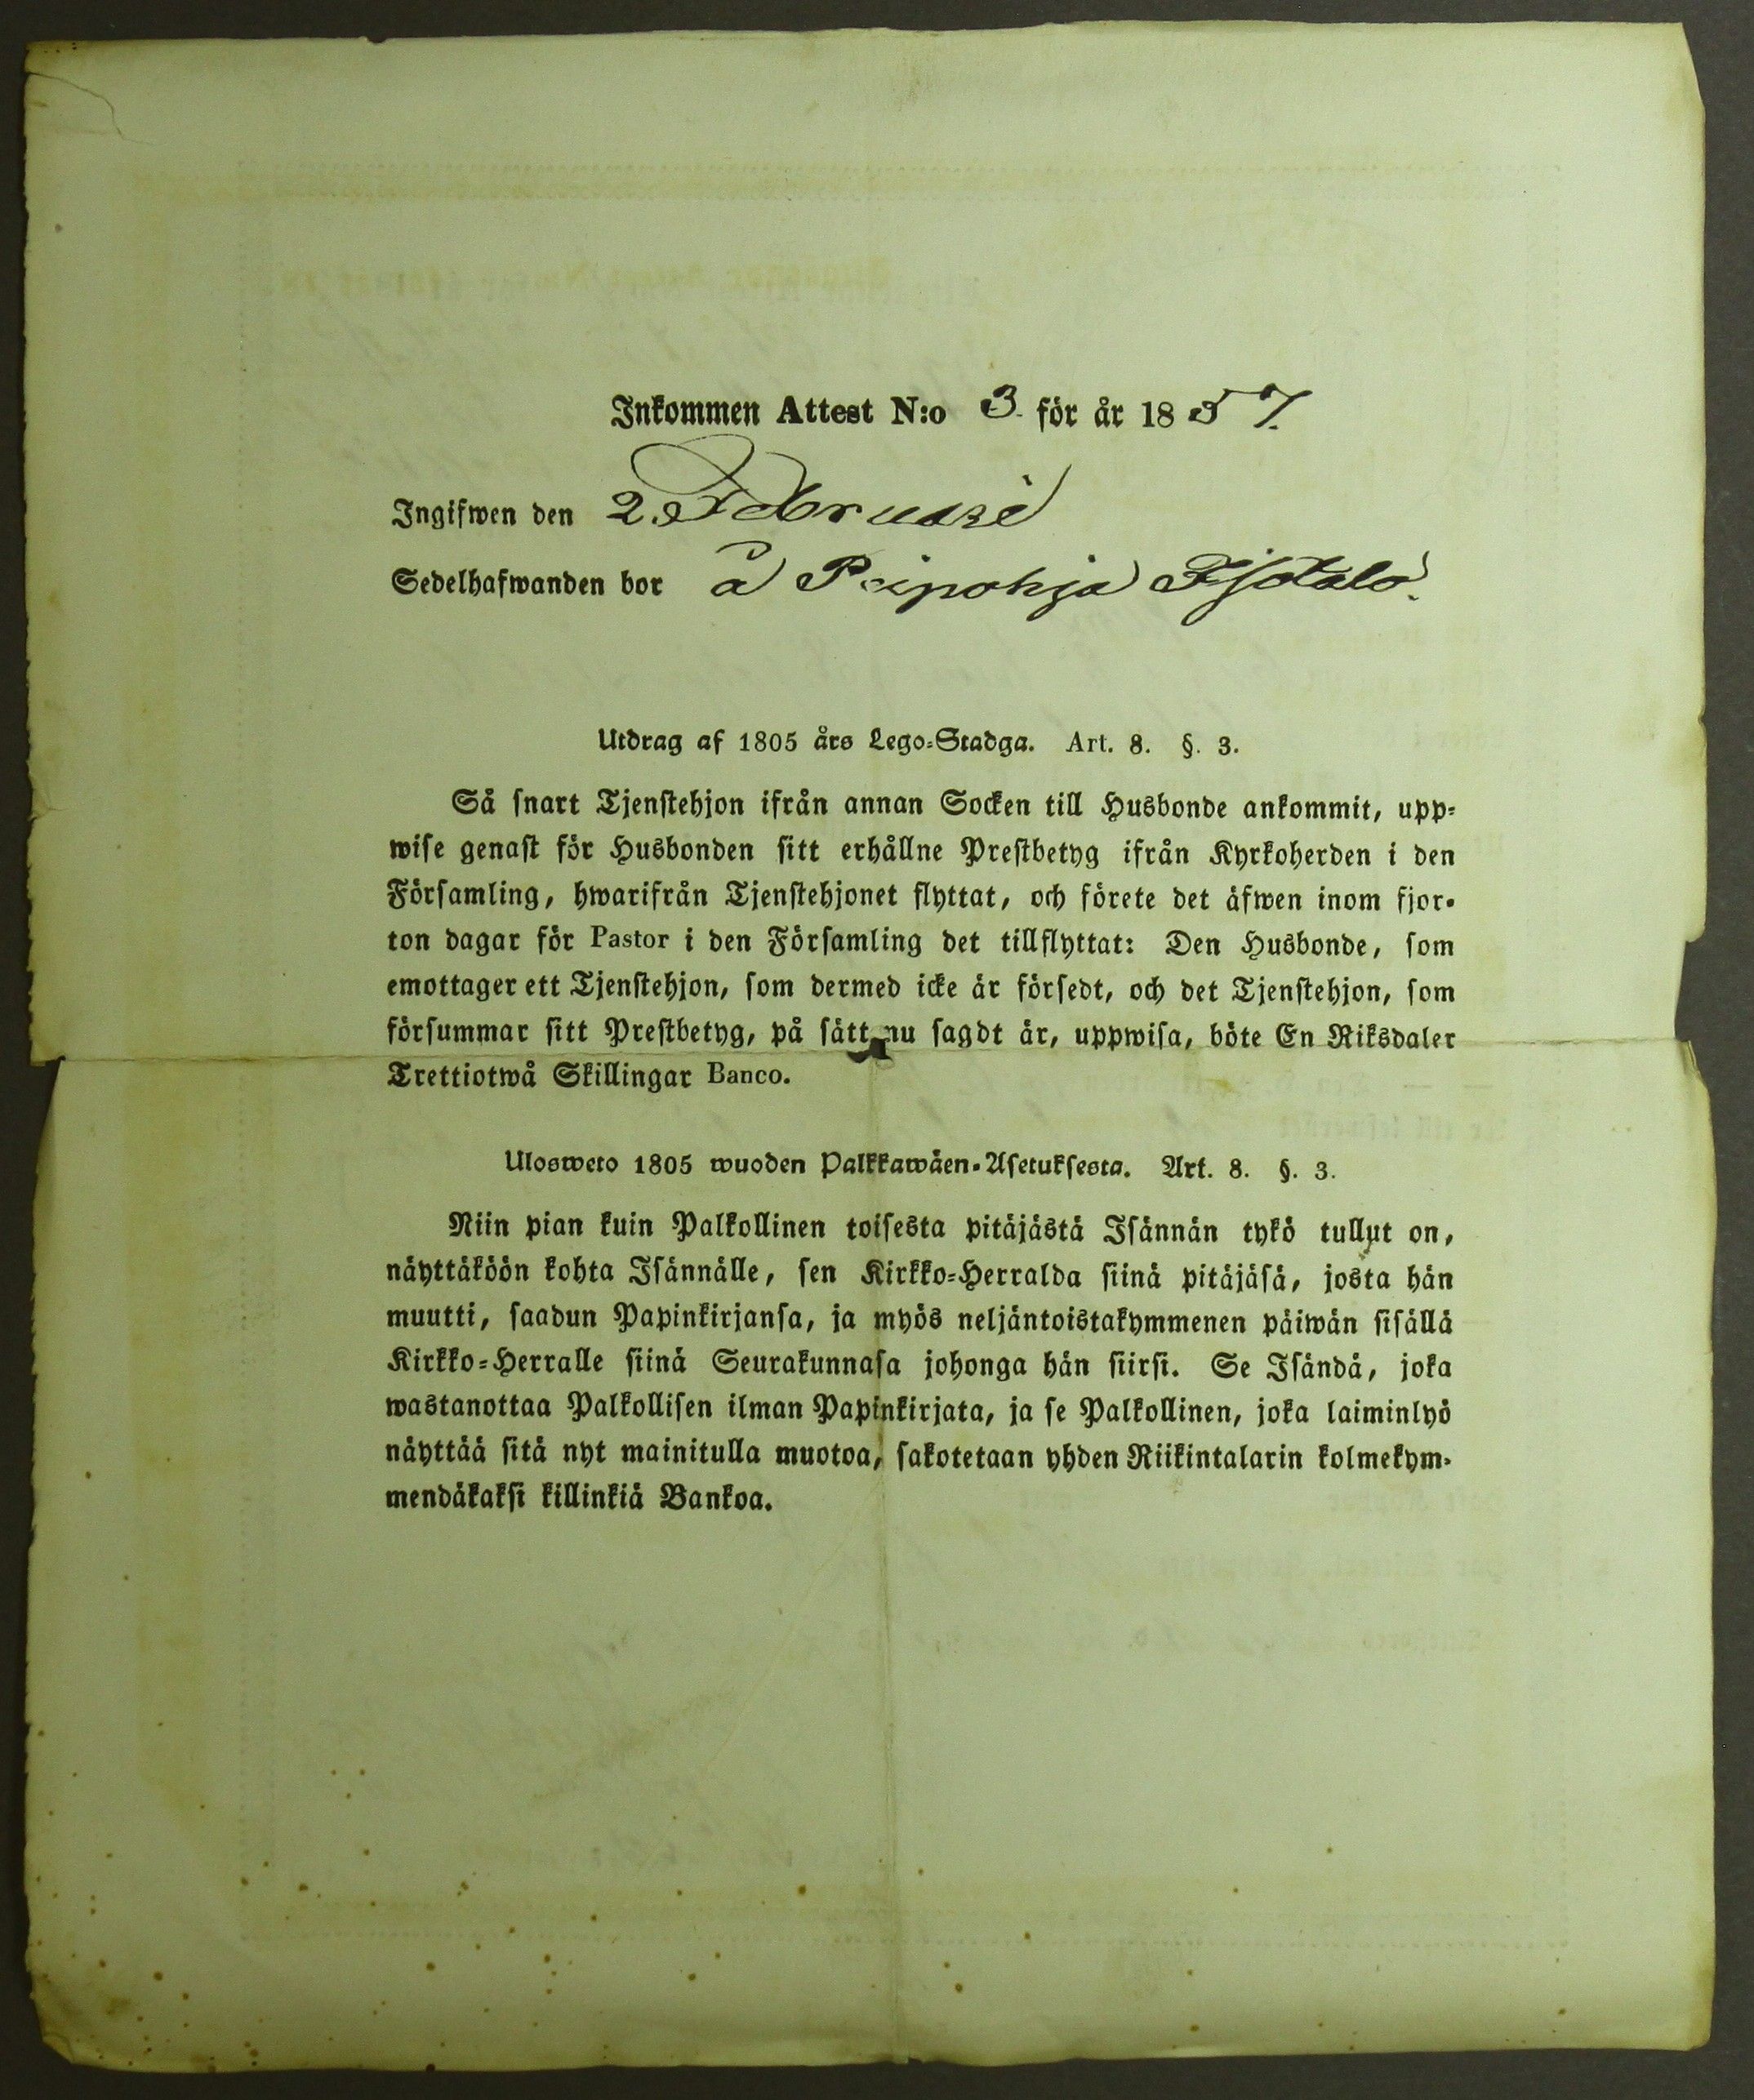 Inkommen Attest N:o 3. för år 1857.
Ingifwen den 2. Februari
Sedelhafwanden bor å Peipohja Isotalo.
Utdrag af 1805 års Lego-Stadga. Art. 8. §. 3.
Så snart Tjenstehjon ifrån annan Socken till Husbonde ankommit, upp-
wise genast för Husbonden sitt erhållne Prestbetyg ifrån Kyrkoherden i den
Församling, hwarifrån Tjenstehjonet flyttat, och förete det äfwen inom fjor-
ton dagar för Pastor i den Församling det tillflyttat: Den Husbonde, som
emottager ett Tjenstehjon, som dermed icke är försedt, och det Tjenstehjon, som
försummar sitt Prestbetyg, på sätt nu sagdt är, uppwisa, böte En Riksdaler
Trettiotwå Skillingar Banco.
Ulosweto 1805 wuoden Palkkawäen-Asetuksesta. Art. 8. §. 3.
Niin pian kuin Palkollinen toisesta pitäjästä Isännän tykö tullut on,
näyttäköön kohta Isännälle, sen Kirkko-Herralda siinä pitäjäsä, josta hän
muutti, saadun Papinkirjansa, ja myös neljäntoistakymmenen päiwän sisällä
Kirkko-Herralle siinä Seurakunnasa johonga hän siirsi. Se Isändä, joka
wastanottaa Palkollisen ilman Papinkirjata, ja se Palkollinen, joka laiminlyö
näyttää sitä nyt mainitulla muotoa, sakotetaan yhden Riikintalarin kolmekym-
mendäkaksi killinkiä Bankoa.